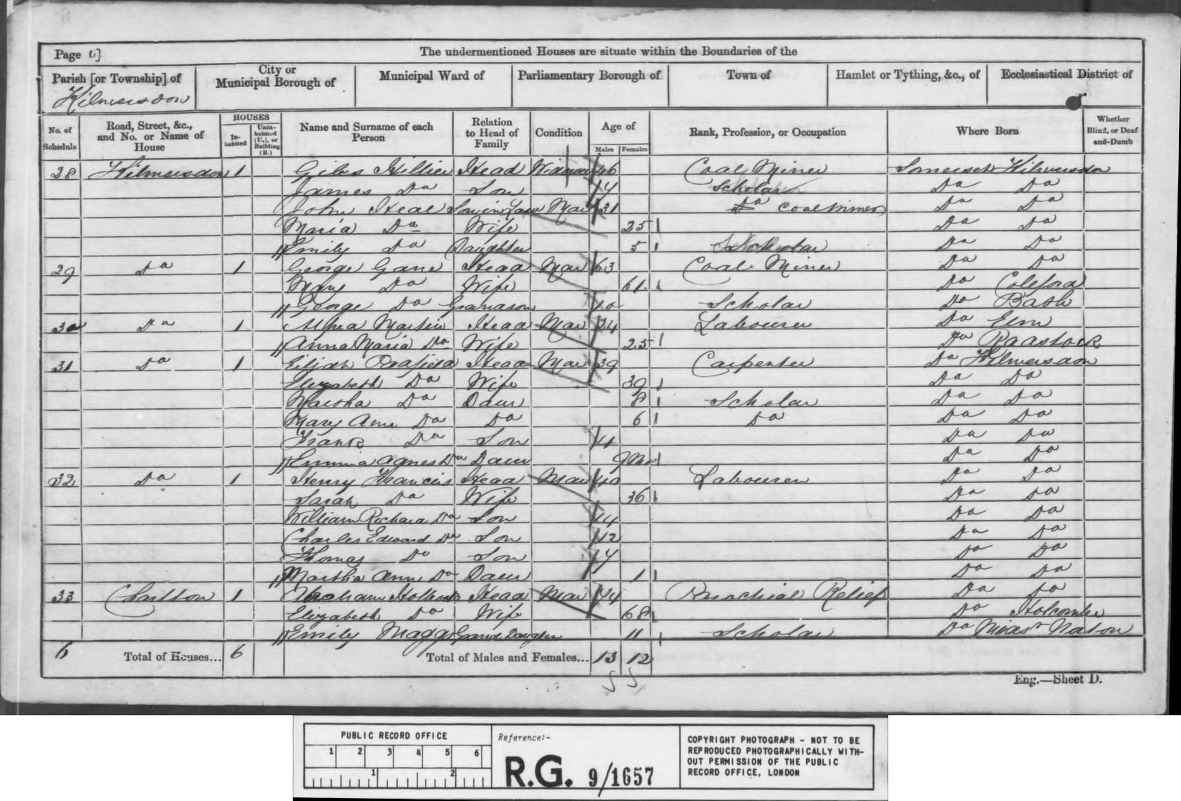 Page 6]
The undermentioned Houses are situate within the Boundaries of the
Parish [or Township] of
City or Municipal Borough of
Municipal Ward of
Parliamentary Borough of
Town of
Hamlet or Tything, &c., of
Ecclesiastical District of
Kilmersdon
No. of Schedule
Road, Street, &c., and No. or Name of House
HOUSES
In-habited
Unin-habited (U.), or Building (B.)
Name and Surname of each Person
Relation to Head of Family
Condition
Age of
Males
Females
Rank, Profession, or Occupation
Where Born
Whether Blind, or Deaf-and-Dumb
28 Kilmersdon 1 Giles Head Widower Coal Miner Somerset Kilmersdon
James Do Son Scholar Do Do
John Heal Son in Law Mar 31 Do Coal Miner Do Do
Maria Do Wife 25 Do Do
Emily Do Daughter 5 Scholar Do Do
29 Do 1 George Gane Head Mar 63 Coal Miner Do Do
Mary Do Wife 61 Do Coleford
George Do Grandson 10 Scholar Do Bath
30 Do 1 Head Mar 34 Labourer Do Elm
Anna Maria Do Wife 25 Do Radstock
31 Do 1 Elijah Head Mar 39 Carpenter Do Kilmersdon
Elizabeth Do Wife 39 Do Do
Do Daur 8 Scholar Do Do
Mary Ann Do Do 6 Do Do Do
Frank Do Son 4 Do Do
Emma Agnes Do Daur Do Do
32 Do 1 Henry Francis Head Mar 40 Labourer Do Do
Sarah Do Wife 36 Do Do
William Richard Do Son 14 Do Do
Charles Edward Do Son 12 Do Do
Thomas Do Son Do Do
Martha Ann Do Daur 1 Do Do
33 Charlton 1 Head Mar 74 Parochial Relief Do Do
Elizabeth Do Wife 68 Do Holcombe
Emily Maggs Grand Daughter 11 Scholar Do Norton
6 Total of Houses... 6 Total of Males and Females... 13 12
Eng.—Sheet D.
PUBLIC RECORD OFFICE
1 2 3 4 5 6
1 2
Reference:-
R.G. 9/1657
COPYRIGHT PHOTOGRAPH - NOT TO BE
REPRODUCED PHOTOGRAPHICALLY WITH-
OUT PERMISSION OF THE PUBLIC
RECORD OFFICE, LONDON